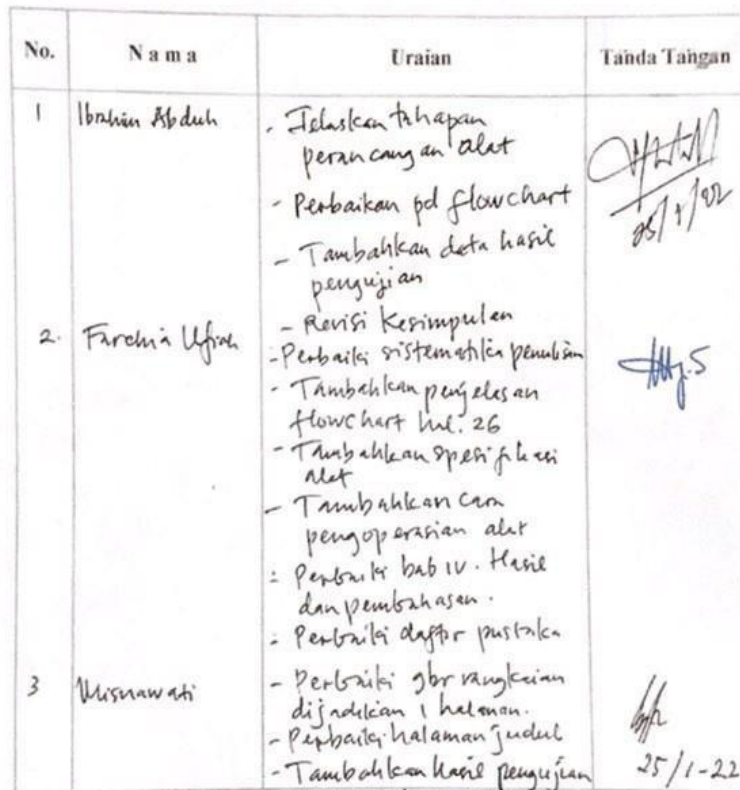 No. N a m a Uraian Tanda Tangan
1 Ibrahim Abduh - Jelaskan tahapan
perancangan alat
- Perbaikan pd flowchart
25/1/22
- Tambahkan data hasil
pengujian
- Revisi Kesimpulan
2. Farchia Ufiah - Perbaiki sistematika penulisan
- Tambahkan penjelasan
flowchart hal. 26
- Tambahkan spesifikasi
alat
- Tambahkan cara
pengoperasian alat
- Perbaiki bab IV. Hasil
dan pembahasan.
- Perbaiki daftar pustaka
3 Misnawati - Perbaiki gbr rangkaian
dijadikan 1 halaman.
- Perbaiki halaman judul
- Tambahkan hasil pengujian 25/1-22